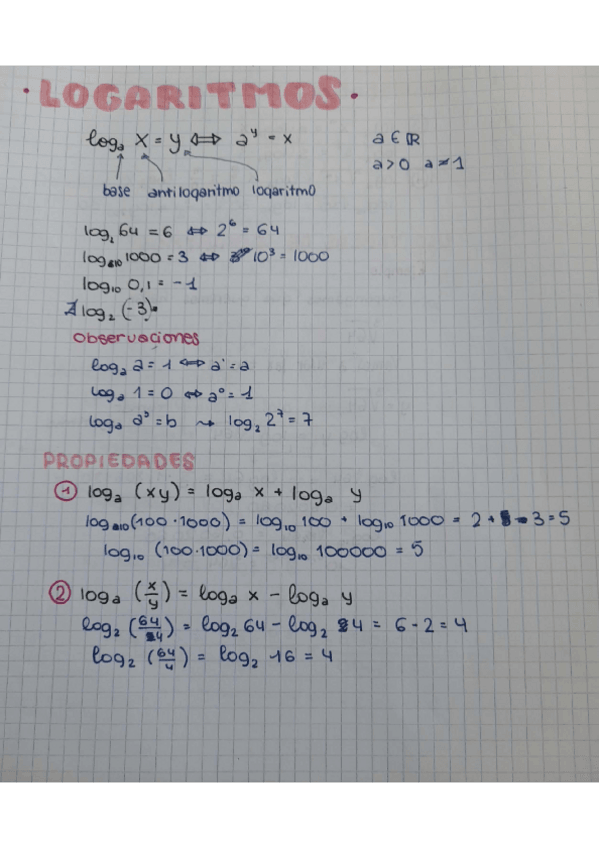 · LOGARITMOS ·
logₐ x = y ⟺ a^y = x    a ∈ ℝ
a > 0  a ≠ 1
base antilogaritmo logaritmo
log₂ 64 = 6 ⟺ 2⁶ = 64
log₁₀ 1000 = 3 ⟺ 10³ = 1000
log₁₀ 0,1 = -1
∄ log₂ (-3)
Observaciones
logₐ a = 1 ⟺ a¹ = a
logₐ 1 = 0 ⟺ a⁰ = 1
logₐ = b → log₂ 2⁷ = 7
PROPIEDADES
① logₐ (xy) = logₐ x + logₐ y
log₁₀ (100 · 1000) = log₁₀ 100 + log₁₀ 1000 = 2 + 3 = 5
log₁₀ (100·1000) = log₁₀ 100000 = 5
② logₐ (x/y) = logₐ x - logₐ y
log₂ (64/4) = log₂ 64 - log₂ 4 = 6 - 2 = 4
log₂ (64/4) = log₂ 16 = 4